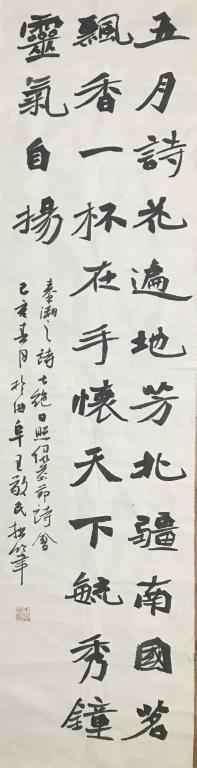 五月詩花遍地芳北疆南國茗
飄香一杯在手懷天下毓秀鐘
靈氣自揚
秦淑之詩七絕日照綠茶節詩會
己亥春月於曲阜王敬民拙筆